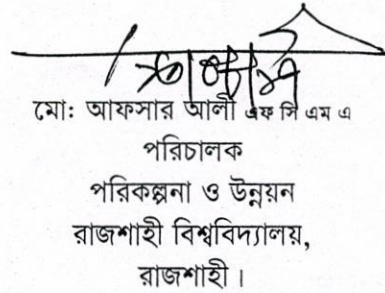 মো: আফসার আলী এফ সি এম এ
পরিচালক
পরিকল্পনা ও উন্নয়ন
রাজশাহী বিশ্ববিদ্যালয়,
রাজশাহী।